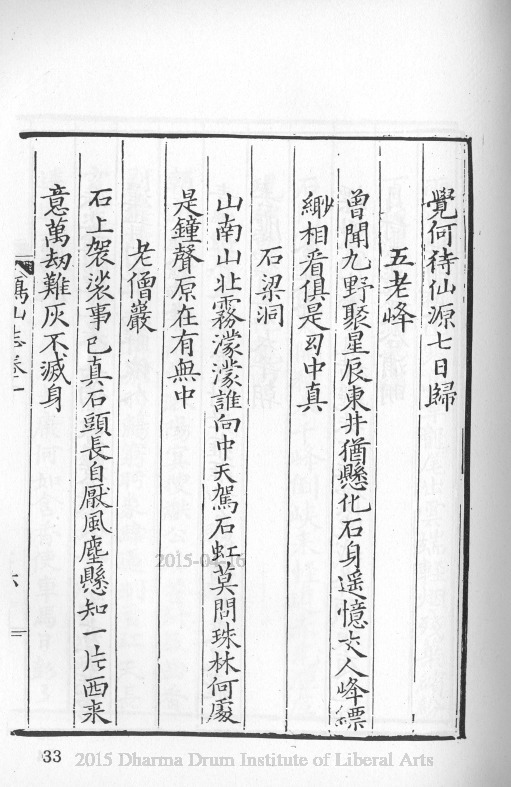 覺何待仙源七日歸
五老峰
曾聞九野聚星辰東井猶懸化石身遥憶丈人峰縹
緲相看俱是幻中真
石梁洞
山南山北霧濛濛誰向中天駕石虹莫問珠林何處
是鐘聲原在有無中
老僧巖
石上袈裟事已真石頭長自厭風塵懸知一片西来
意萬劫難灰不滅身
山志卷一
六
2015-04-16
33 2015 Dharma Drum Institute of Liberal Arts